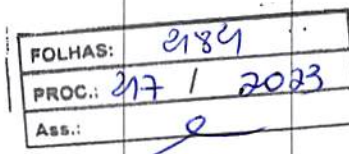 FOLHAS: 484
PROC.: 47 / 2023
Ass.: